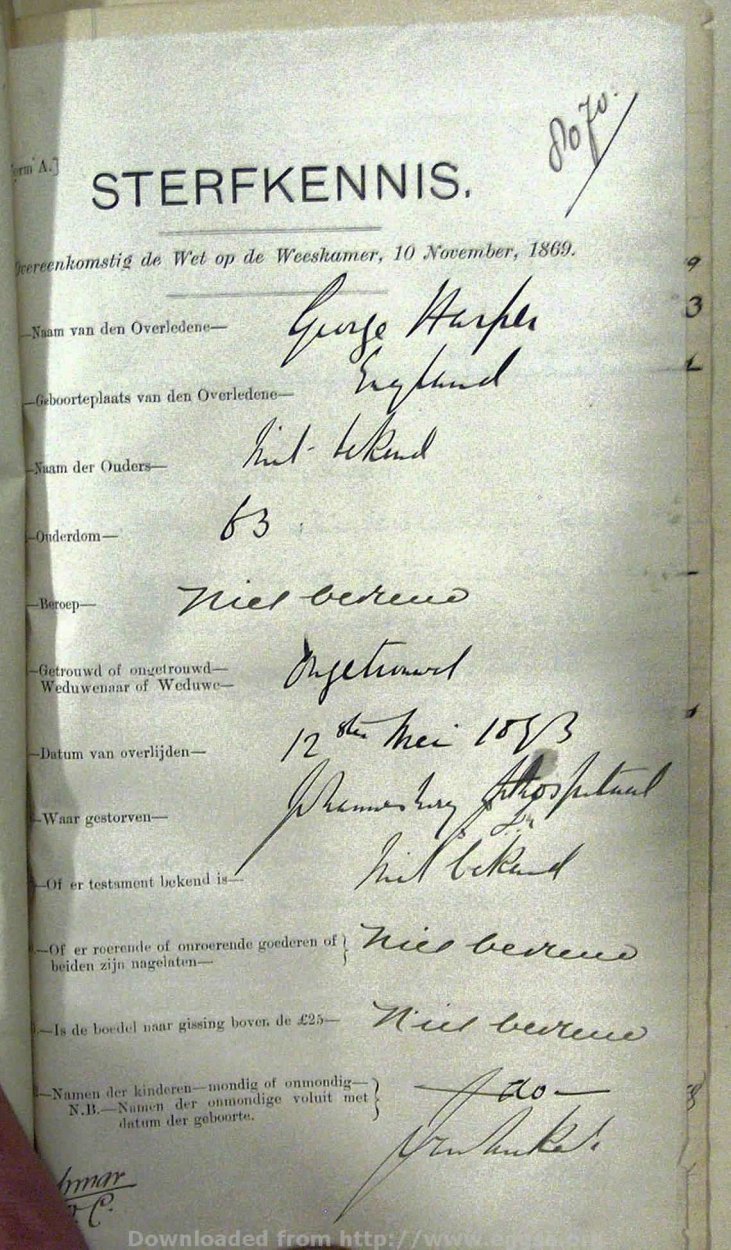 8070.
Form A.]
STERFKENNIS.
Overeenkomstig de Wet op de Weeskamer, 10 November, 1869.
—Naam van den Overledene— George Harper
—Geboorteplaats van den Overledene— England
—Naam der Ouders— Niet bekend
—Ouderdom— 63
—Beroep— Niet bekend
—Getrouwd of ongetrouwd— Ongetrouwd
Weduwenaar of Weduwe—
—Datum van overlijden— 12 Mei 1893
—Waar gestorven— Johannesburg Hospitaal
—Of er testament bekend is— Niet bekend
—Of er roerende of onroerende goederen of } Niet bekend
beiden zijn nagelaten—
—Is de boedel naar gissing boven de £25— Niet bekend
—Namen der kinderen—mondig of onmondig— } — do —
N.B.—Namen der onmondige voluit met
datum der geboorte.
Downloaded from http://www.